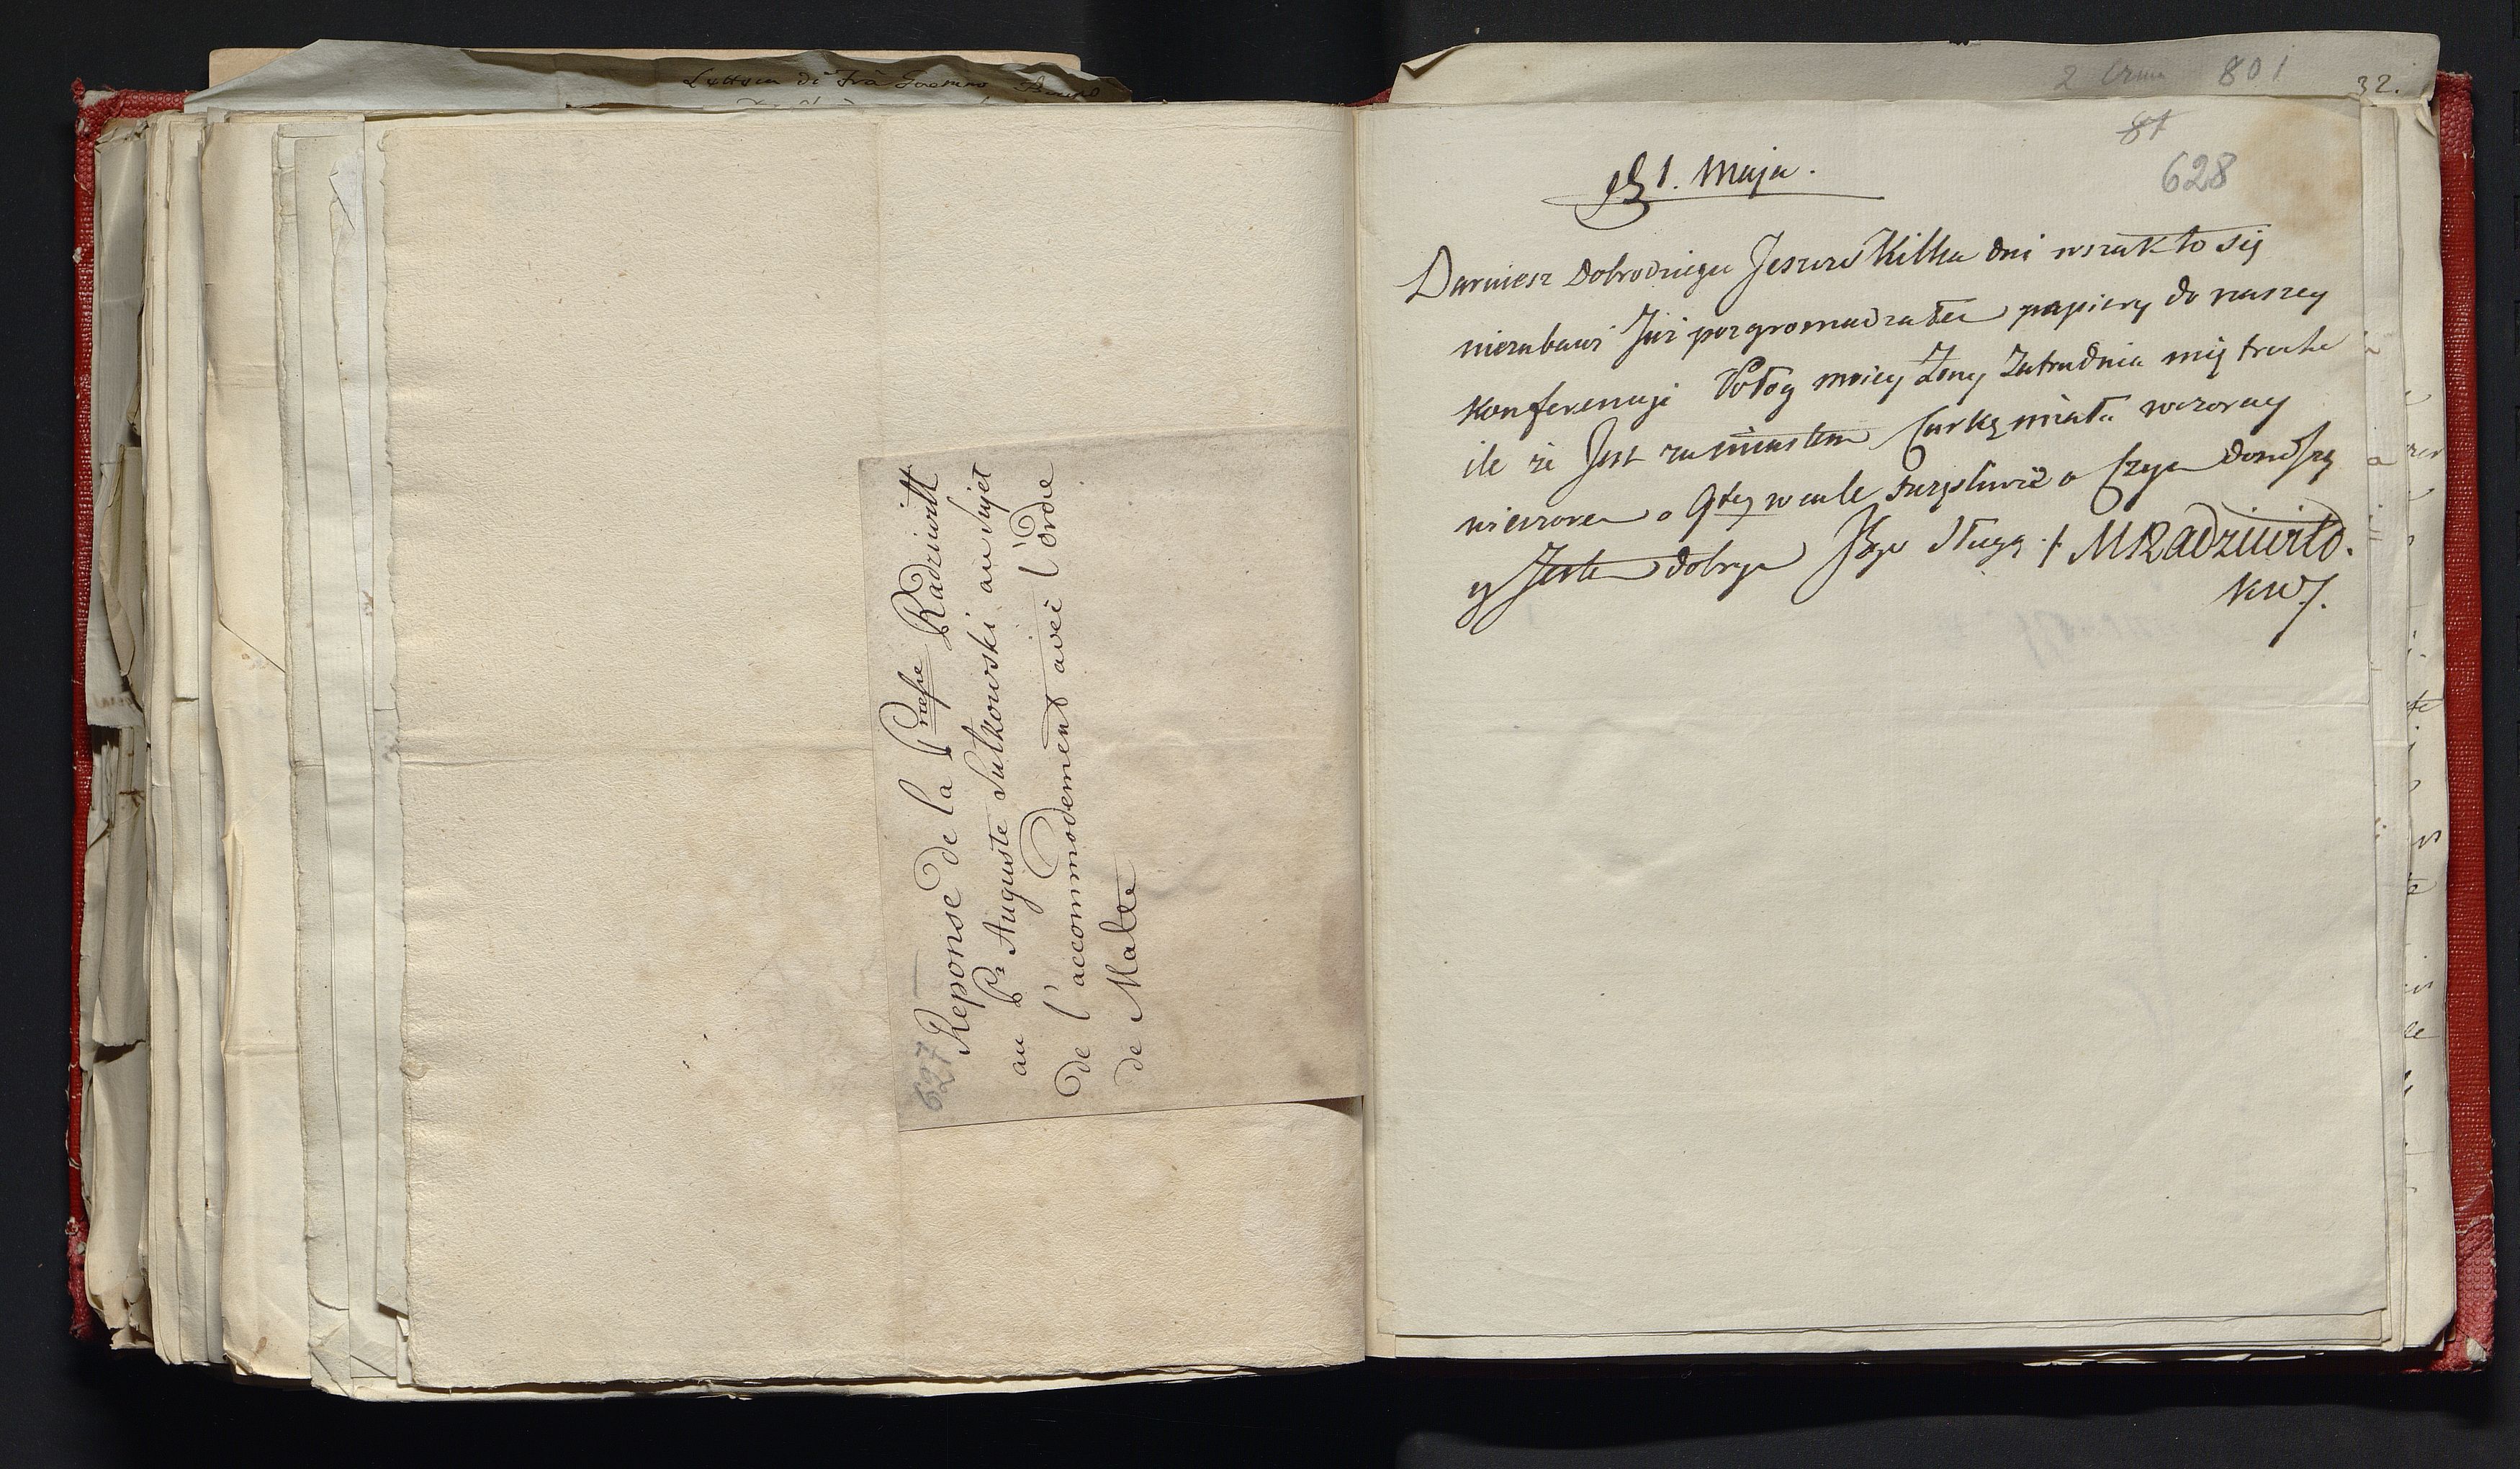 Lettera di frà Gaetano Bruno
627
Reponse de la Pnesse Radziwiłł
au Pce Auguste Sułkowski au Sujet
de l'accommodement avec l'ordre
de Malte
801
32.
81
628
1. Maja.
Daruiesz Dobrodzieju Jeszcze Kilka dni wszak to się
niezabawi Już pozgromadzałem papiery do naszey
konferencyi Połog moiey Żony Zatrudnia mię trochę
ile że Jest za miastem Curkę miała wczoray
wieczorem o 9tey wcale szczęśliwie o Czym donoszę
y Jestem dobrym Jego Sługą + MRadziwiło.
KW.